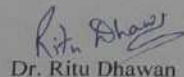 Ritu Dhawan
Dr. Ritu Dhawan